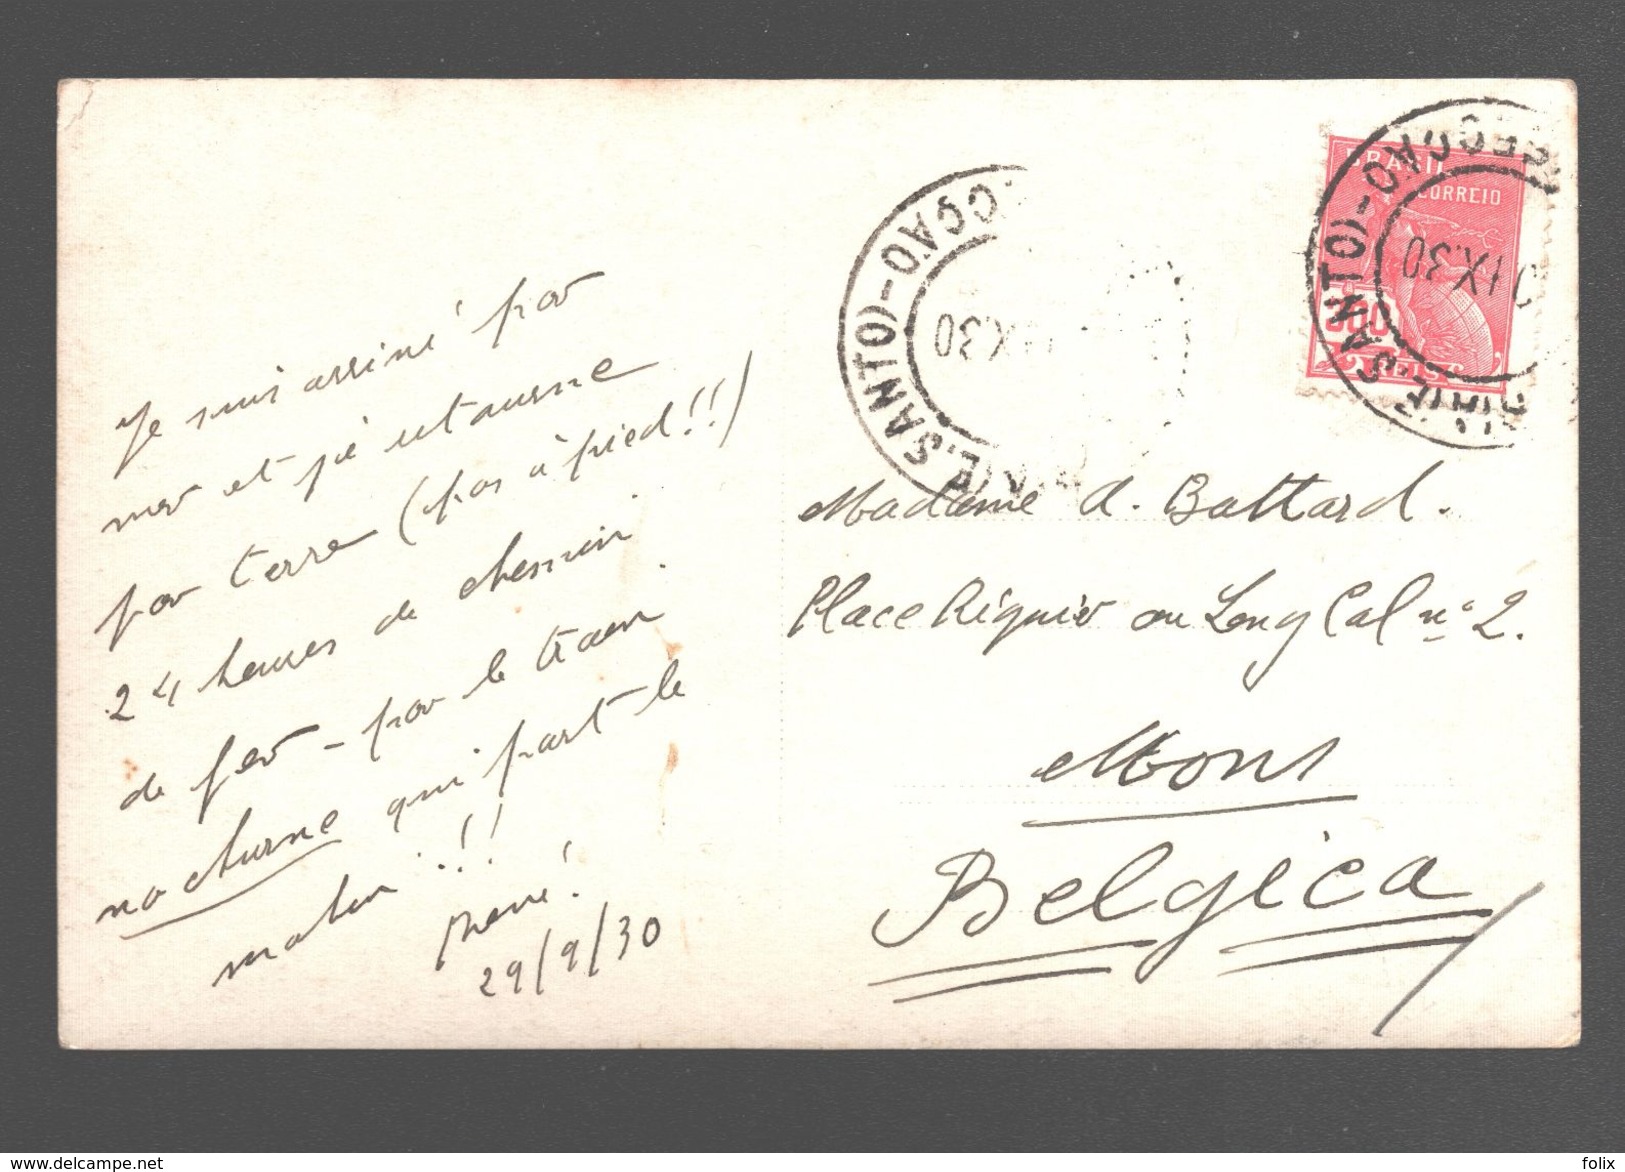 Je suis arrivé par
mer et je retourne
par terre (pas à pied!!)
24 heures de chemin
de fer - par le train
nocturne qui part le
matin!!
René!
29/9/30
BRASIL
CORREIO
300
REIS
SECÇÃO
E. SANTO)-
IX.30
CÇÃO
(E. SANTO)-
IX.30
Madame A. Battard.
Place Régnier au Long Cal n° 2.
Mons
Belgica
delcampe.net
folix